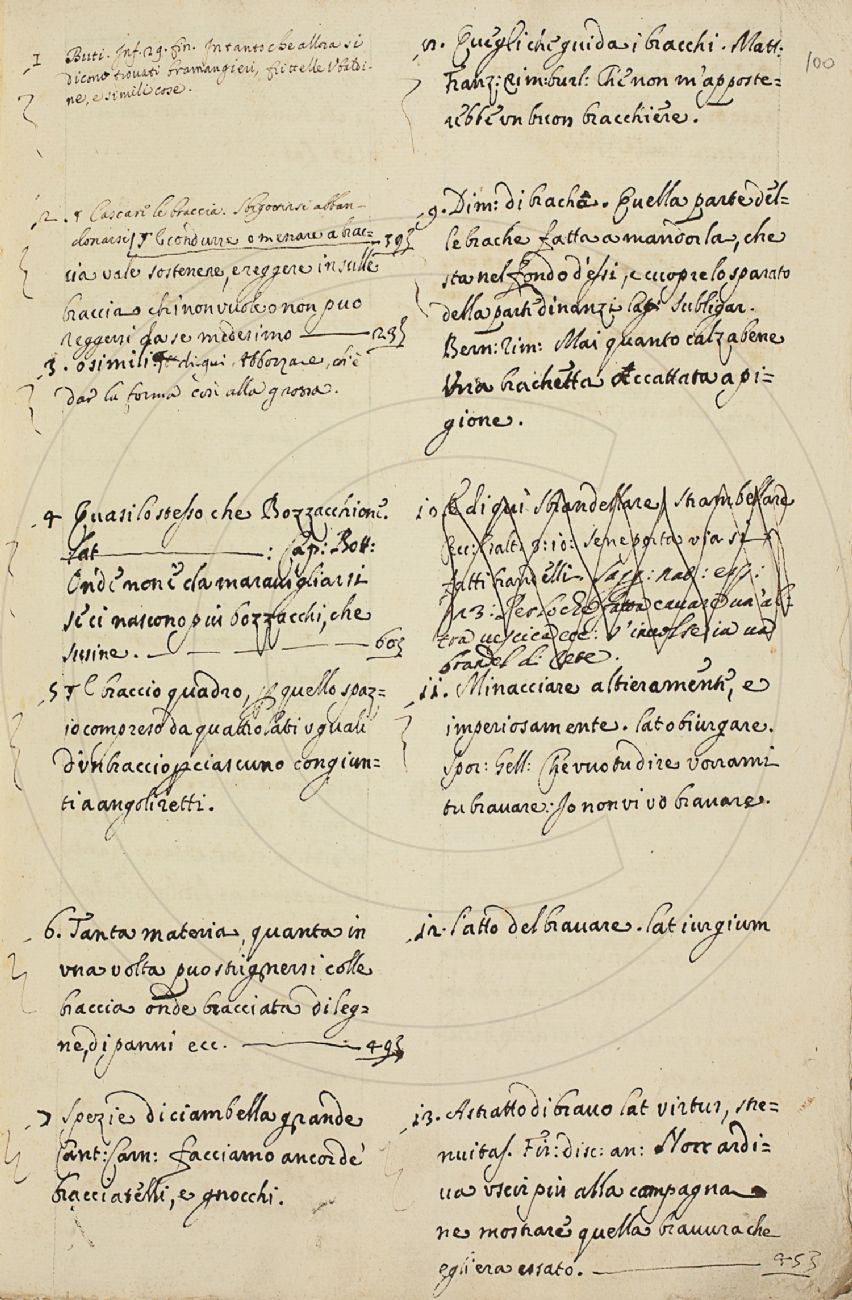 100
1 Buti. Inf. 29. fin. In tanto che allora si
dicono trovati bramangieri, frittelle Ubaldi-
ne, e simili cose.
2. ¶ Cascare le braccia. Sbigottirsi abban-
donarsi ¶ E condurre o menare a brac=
cia vale sostenere, e reggere in sulle 39
braccia chi non vuole o non puo
reggersi da se medesimo 29
3. o simili di qui Abbozzare, ch'è
dar la forma così alla grossa.
4 Quasi lo stesso che Bozzacchione.
Lat : Cap: Bott:
Onde non è da maravigliarsi
se ci nascono piu bozzacchi, che
susine. 60
5 ¶ E braccio quadro, p quello spaz=
io compreso da quattro lati uguali
d'un braccio p ciascuno congiun=
ti a angoli retti.
6. Tanta materia, quanta in
una volta puo strignersi colle
braccia onde bracciata di leg=
ne, di panni ecc. 49
7 Spezie di ciambella grande
Cant: Carn: facciamo ancor de
bracciatelli, e gnocchi.
Quegli che guida i bracchi. Matt:
Franz: Rim: burl: Che non m'apposte=
rebbe un buon bracchiere.
9. Dim: di brache. Quella parte del=
le brache fatta a mandorla, che
sta nel fondo d'essi, e cuopre lo sparato
della parte dinanzi lat: subligar.
Bern: Rim: Mai quanto calza bene
Una brachetta Accattata a pi=
gione.
10 E di qui sbrandellare, strambellare
ecc: se ne porta via si
fatti brandelli. Sagg: nat: esp:
Per lo che fatta cavare un'al
tra vescica ecc: v'involse ia un
brandel di rete.
11. Minacciare altieramente, e
imperiosamente. lat obiurgare.
Spor: Gell: Che vuo tu dire vorrami
tu bravare: Io non vi vo bravare.
12. l'atto del bravare. lat iurgium
13. Astratto di bravo lat virtus, stre=
nuitas. Fir: disc: an: Non ardi=
va uscir piu alla campagna
ne mostrare quella bravura che
egli era usato. 453